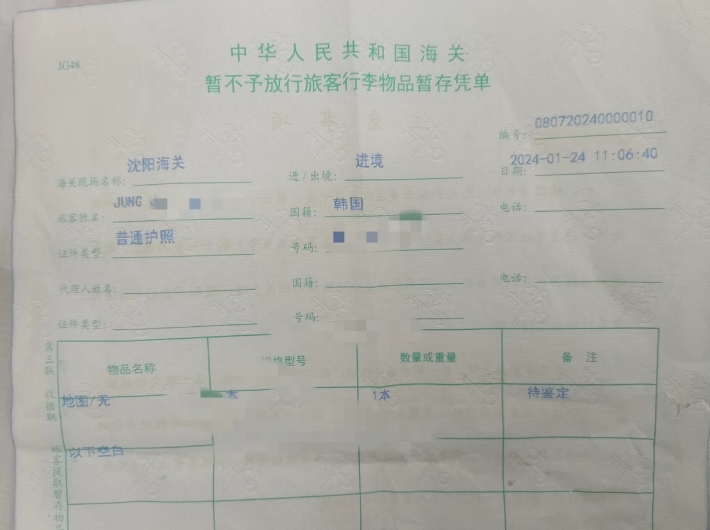 JG48
中华人民共和国海关
暂不予放行旅客行李物品暂存凭单
编号: 080720240000010
海关现场名称: 沈阳海关 进/出境: 进境 日期: 2024-01-24 11:06:40
旅客姓名: JUNG 国籍: 韩国 电话:
证件类型: 普通护照 号码:
代理人姓名: 国籍: 电话:
证件类型: 号码:
物品名称 规格型号 数量或重量 备注
地图/无 本 1本 待鉴定
以下空白
第三联 收据联